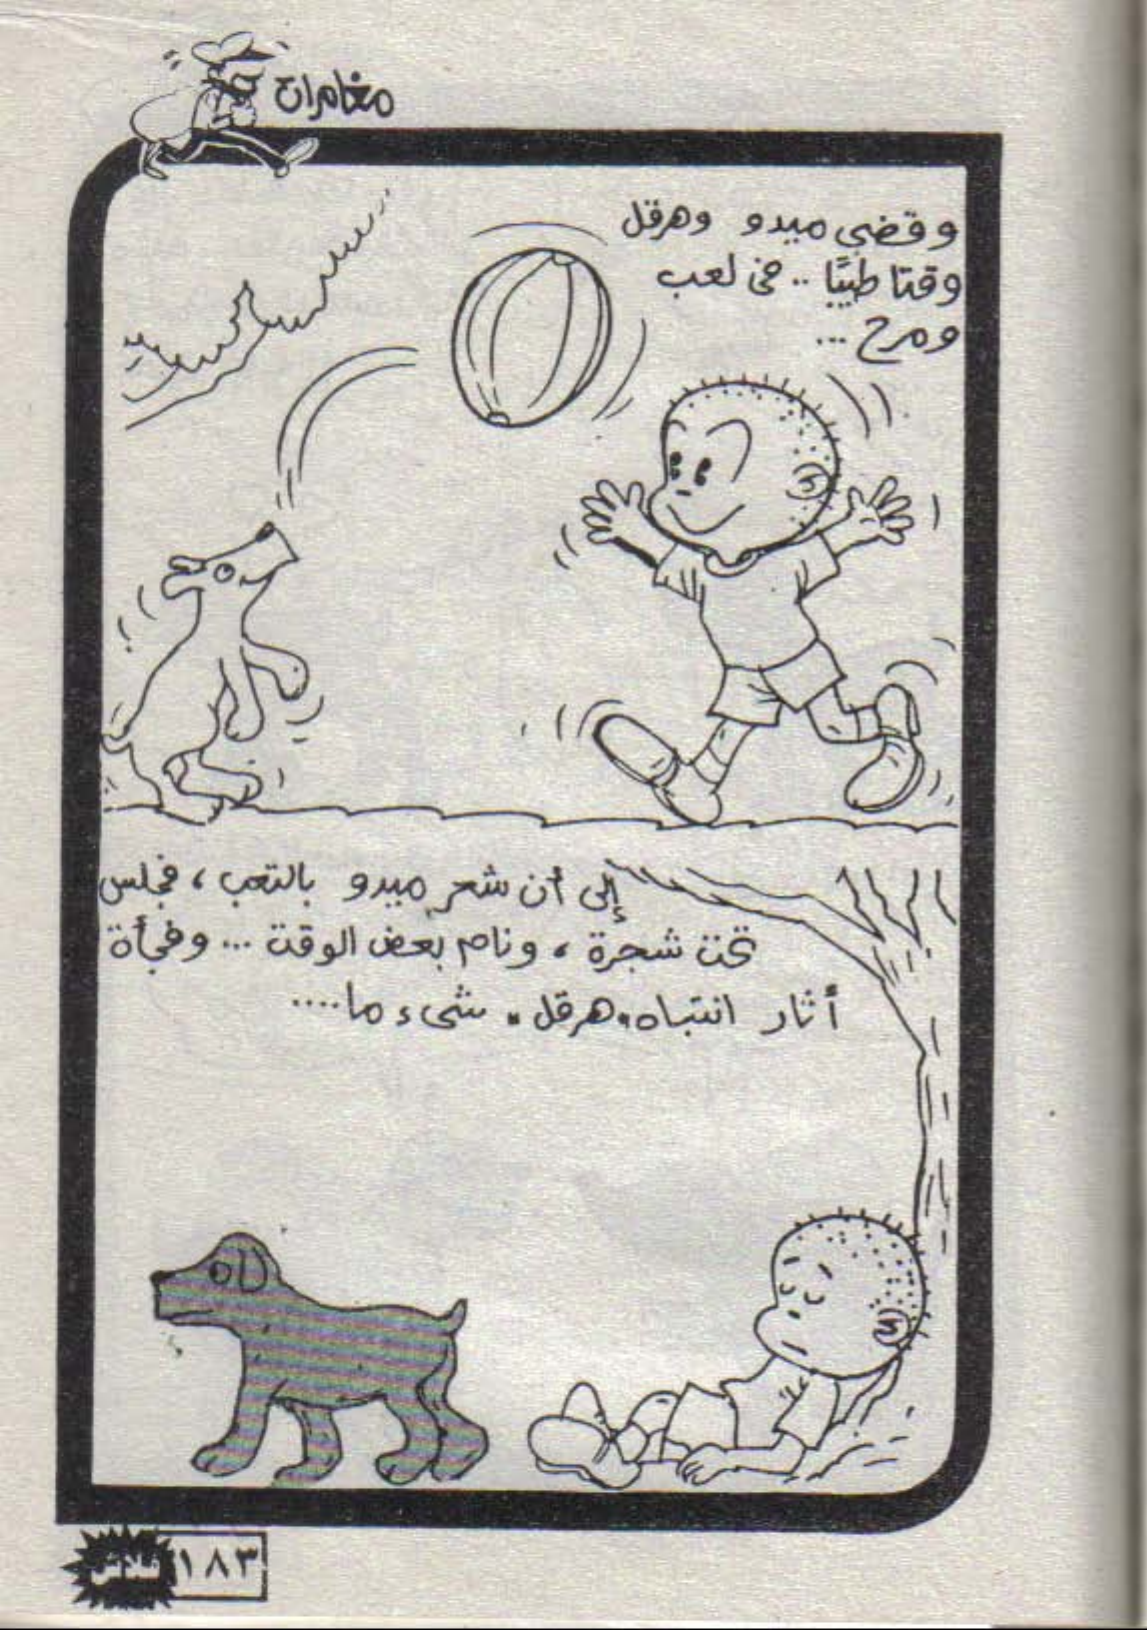 مغامرات
وقضى ميدو وهرقل
وقتا طيبًا .. في لعب
ومرح ...
إلى أن شعر ميدو بالتعب ، فجلس
تحت شجرة ، ونام بعض الوقت ... وفجأة
أثار انتباه "هرقل" شيء ما ....
فلاش
١٨٣